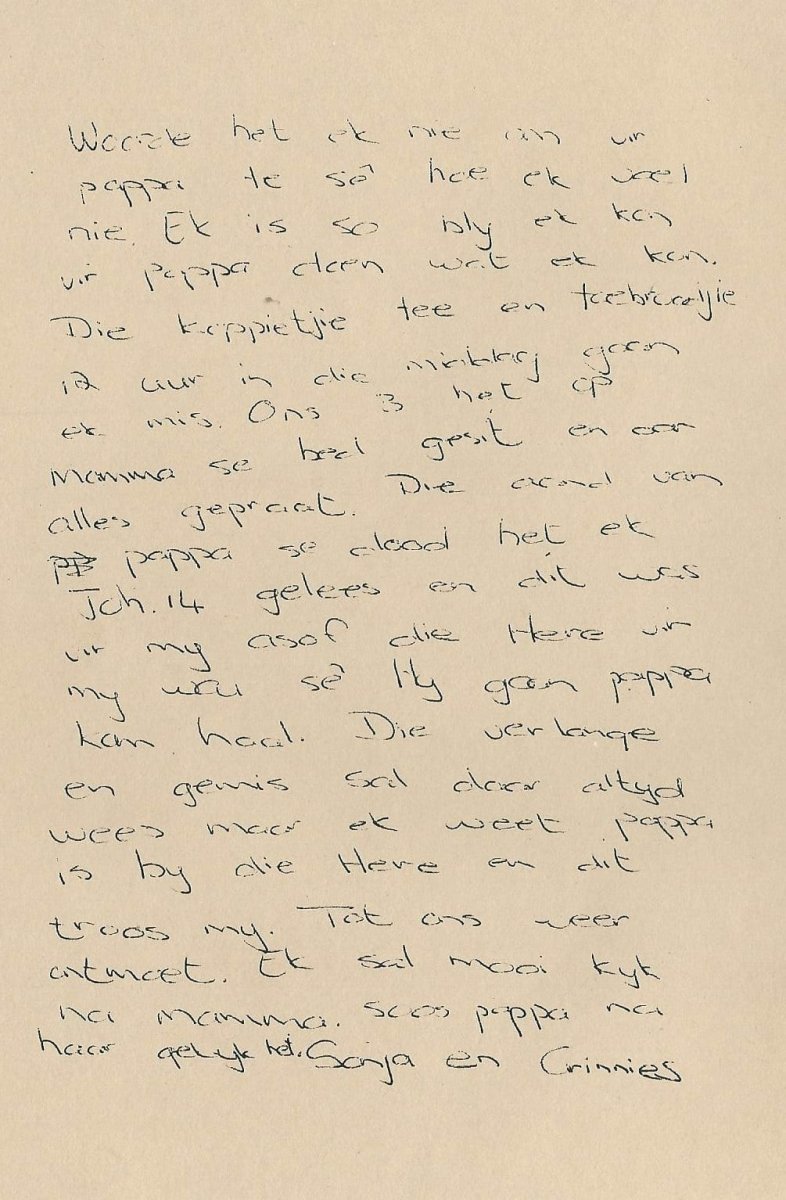 Woorde het ek nie om vir
pappa te sê hoe ek voel
nie. Ek is so bly ek kon
vir pappa doen wat ek kon.
Die koppietjie tee en toebroodjie
12 uur in die middag gaan
ek mis. Ons 3 het op
Mamma se bed gesit en oor
alles gepraat. Die aand van
pappa se dood het ek
Joh. 14 gelees en dit was
vir my asof die Here vir
my wou sê Hy gaan pappa
kom haal. Die verlange
en gemis sal daar altyd
wees maar ek weet pappa
is by die Here en dit
troos my. Tot ons weer
ontmoet. Ek sal mooi kyk
na mamma. Soos pappa na
haar gekyk het. Sonja en Crinnies